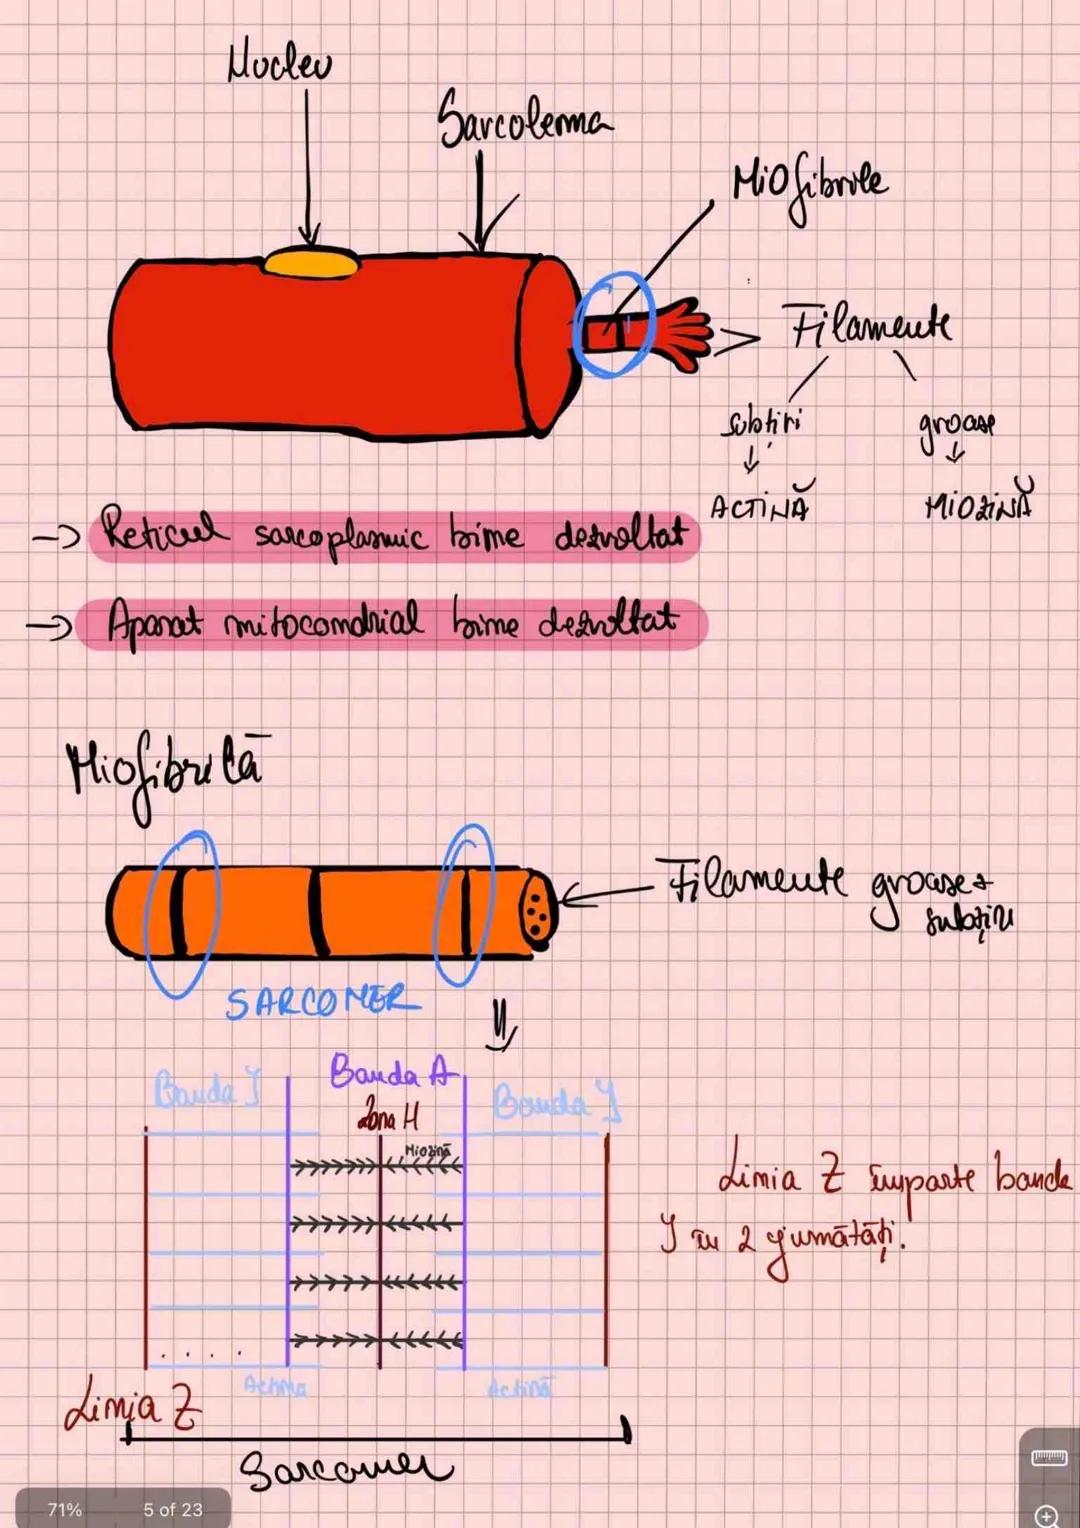 Nucleu
Sarcolema
Miofibrile
Filamente
subtiri
groase
ACTINĂ
MIOZINĂ
-> Reticul sarcoplasmic bine dezvoltat
-> Aparat mitocondrial bine dezvoltat
Miofibrilă
Filamente groase +
subțiri
SARCOMER
Banda I
Banda A
Banda I
Zona H
Miozină
Linia Z împarte banda
I în 2 jumătăți.
. . . .
Actina
Actină
Linia Z
Sarcomer
71%
5 of 23